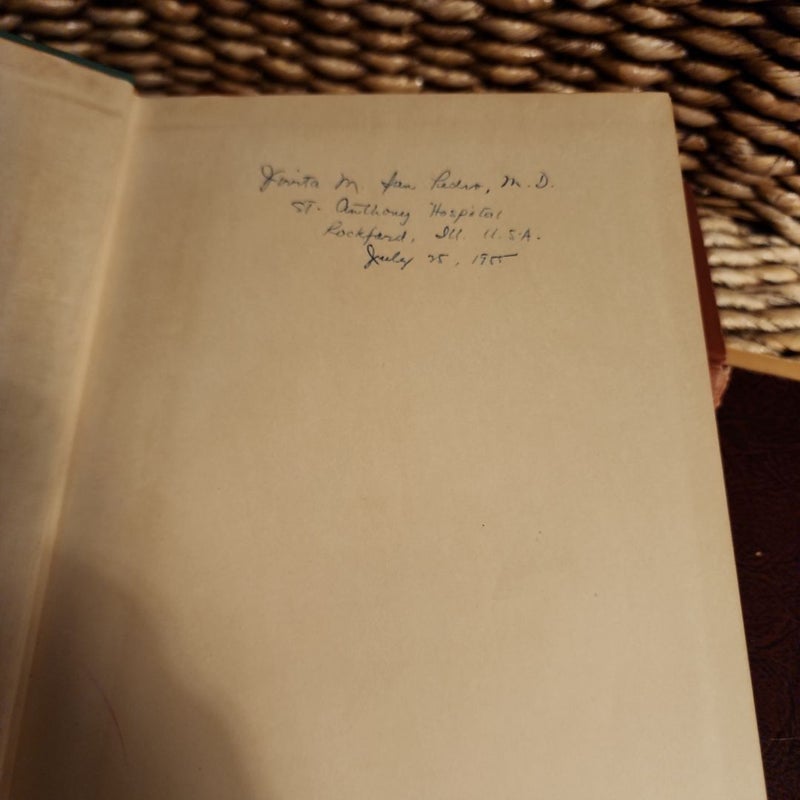 Jovita M. San Pedro, M.D.
St. Anthony Hospital
Rockford, Ill. U.S.A.
July 25, 1955